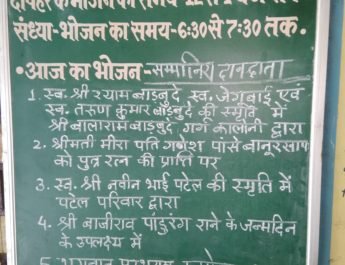 दोपहर के भोजन का समय-12
संध्या-भोजन का समय-6:30 से 7:30 तक.
• आज का भोजन- सम्मानिय दानदाता
1. स्व. श्री श्याम बाडबुदे, स्व. जेगबाई एवं
स्व. तरुण कुमार बाडबुदे की स्मृति में
श्री बालाराम बाडबुदे, गर्ग कालोनी द्वारा
2. श्रीमती मीरा पति गणेश पांसे बानूरखाप
को पुत्र रत्न की प्राप्ति पर
3. स्व. श्री नवीन भाई पटेल की स्मृति में
पटेल परिवार द्वारा
4. श्री बाजीराव पांडुरंग राने के जन्मदिन
के उपलक्ष्य में
5. भगवान